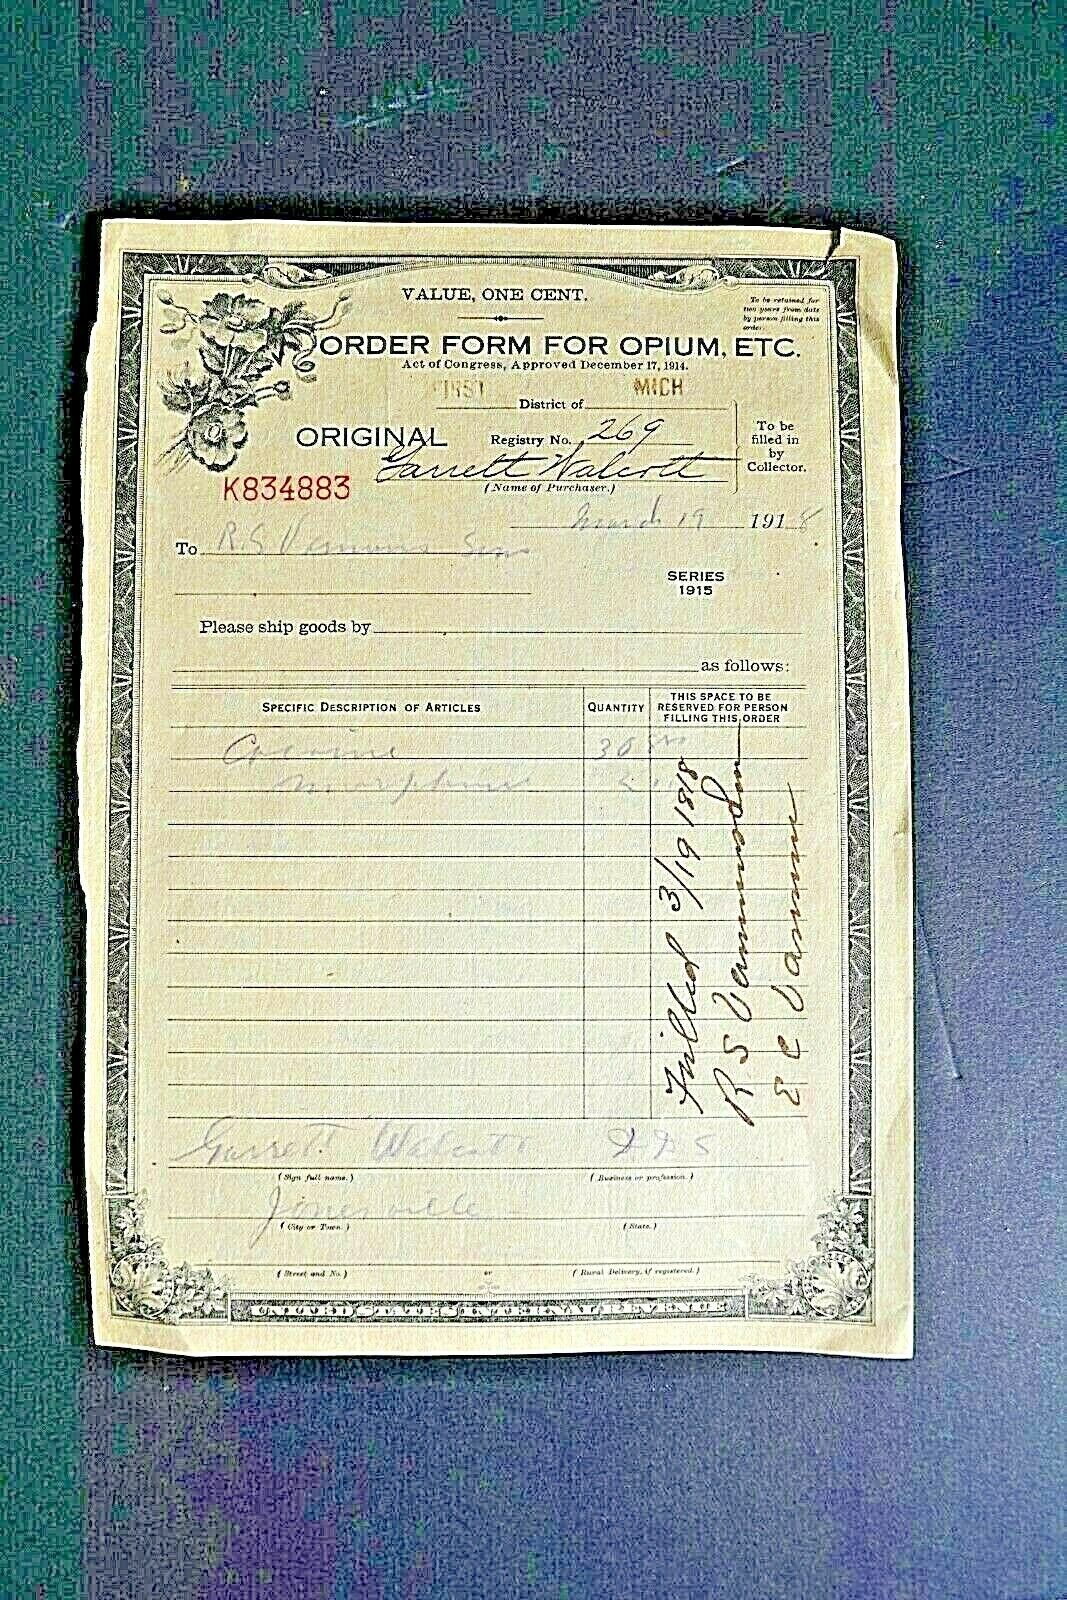 VALUE, ONE CENT.
To be retained for
two years from date
by person filling this
order.
ORDER FORM FOR OPIUM, ETC.
Act of Congress, Approved December 17, 1914.
FIRST District of MICH
ORIGINAL Registry No. 269
To be
filled in
by
Collector.
Garrett Walcott
(Name of Purchaser.)
K834883
March 19 1918
To R.S.
SERIES
1915
Please ship goods by
as follows:
SPECIFIC DESCRIPTION OF ARTICLES QUANTITY THIS SPACE TO BE
RESERVED FOR PERSON
FILLING THIS ORDER
Cocaine 30
Morphine
Filled 3/19 1818
R S
E C
Garrett Walcott D D S
(Sign full name.) (Business or profession.)
Jonesville
(City or Town.) (State.)
(Street and No.) or (Rural Delivery, if registered.)
UNITED STATES INTERNAL REVENUE